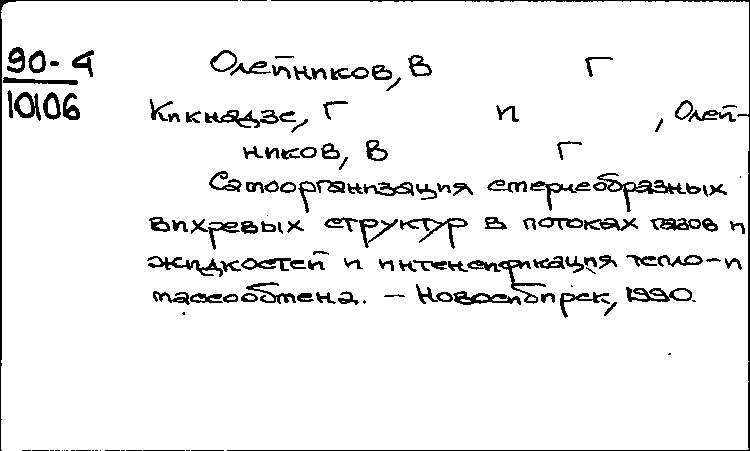 90-4
10106
Олейников, В Г
Кикнадзе, Г И, Олей-
ников, В Г
Самоорганизация смерчеобразных
вихревых структур в потоках газов и
жидкостей и интенсификация тепло-и
массообмена. — Новосибирск, 1990.